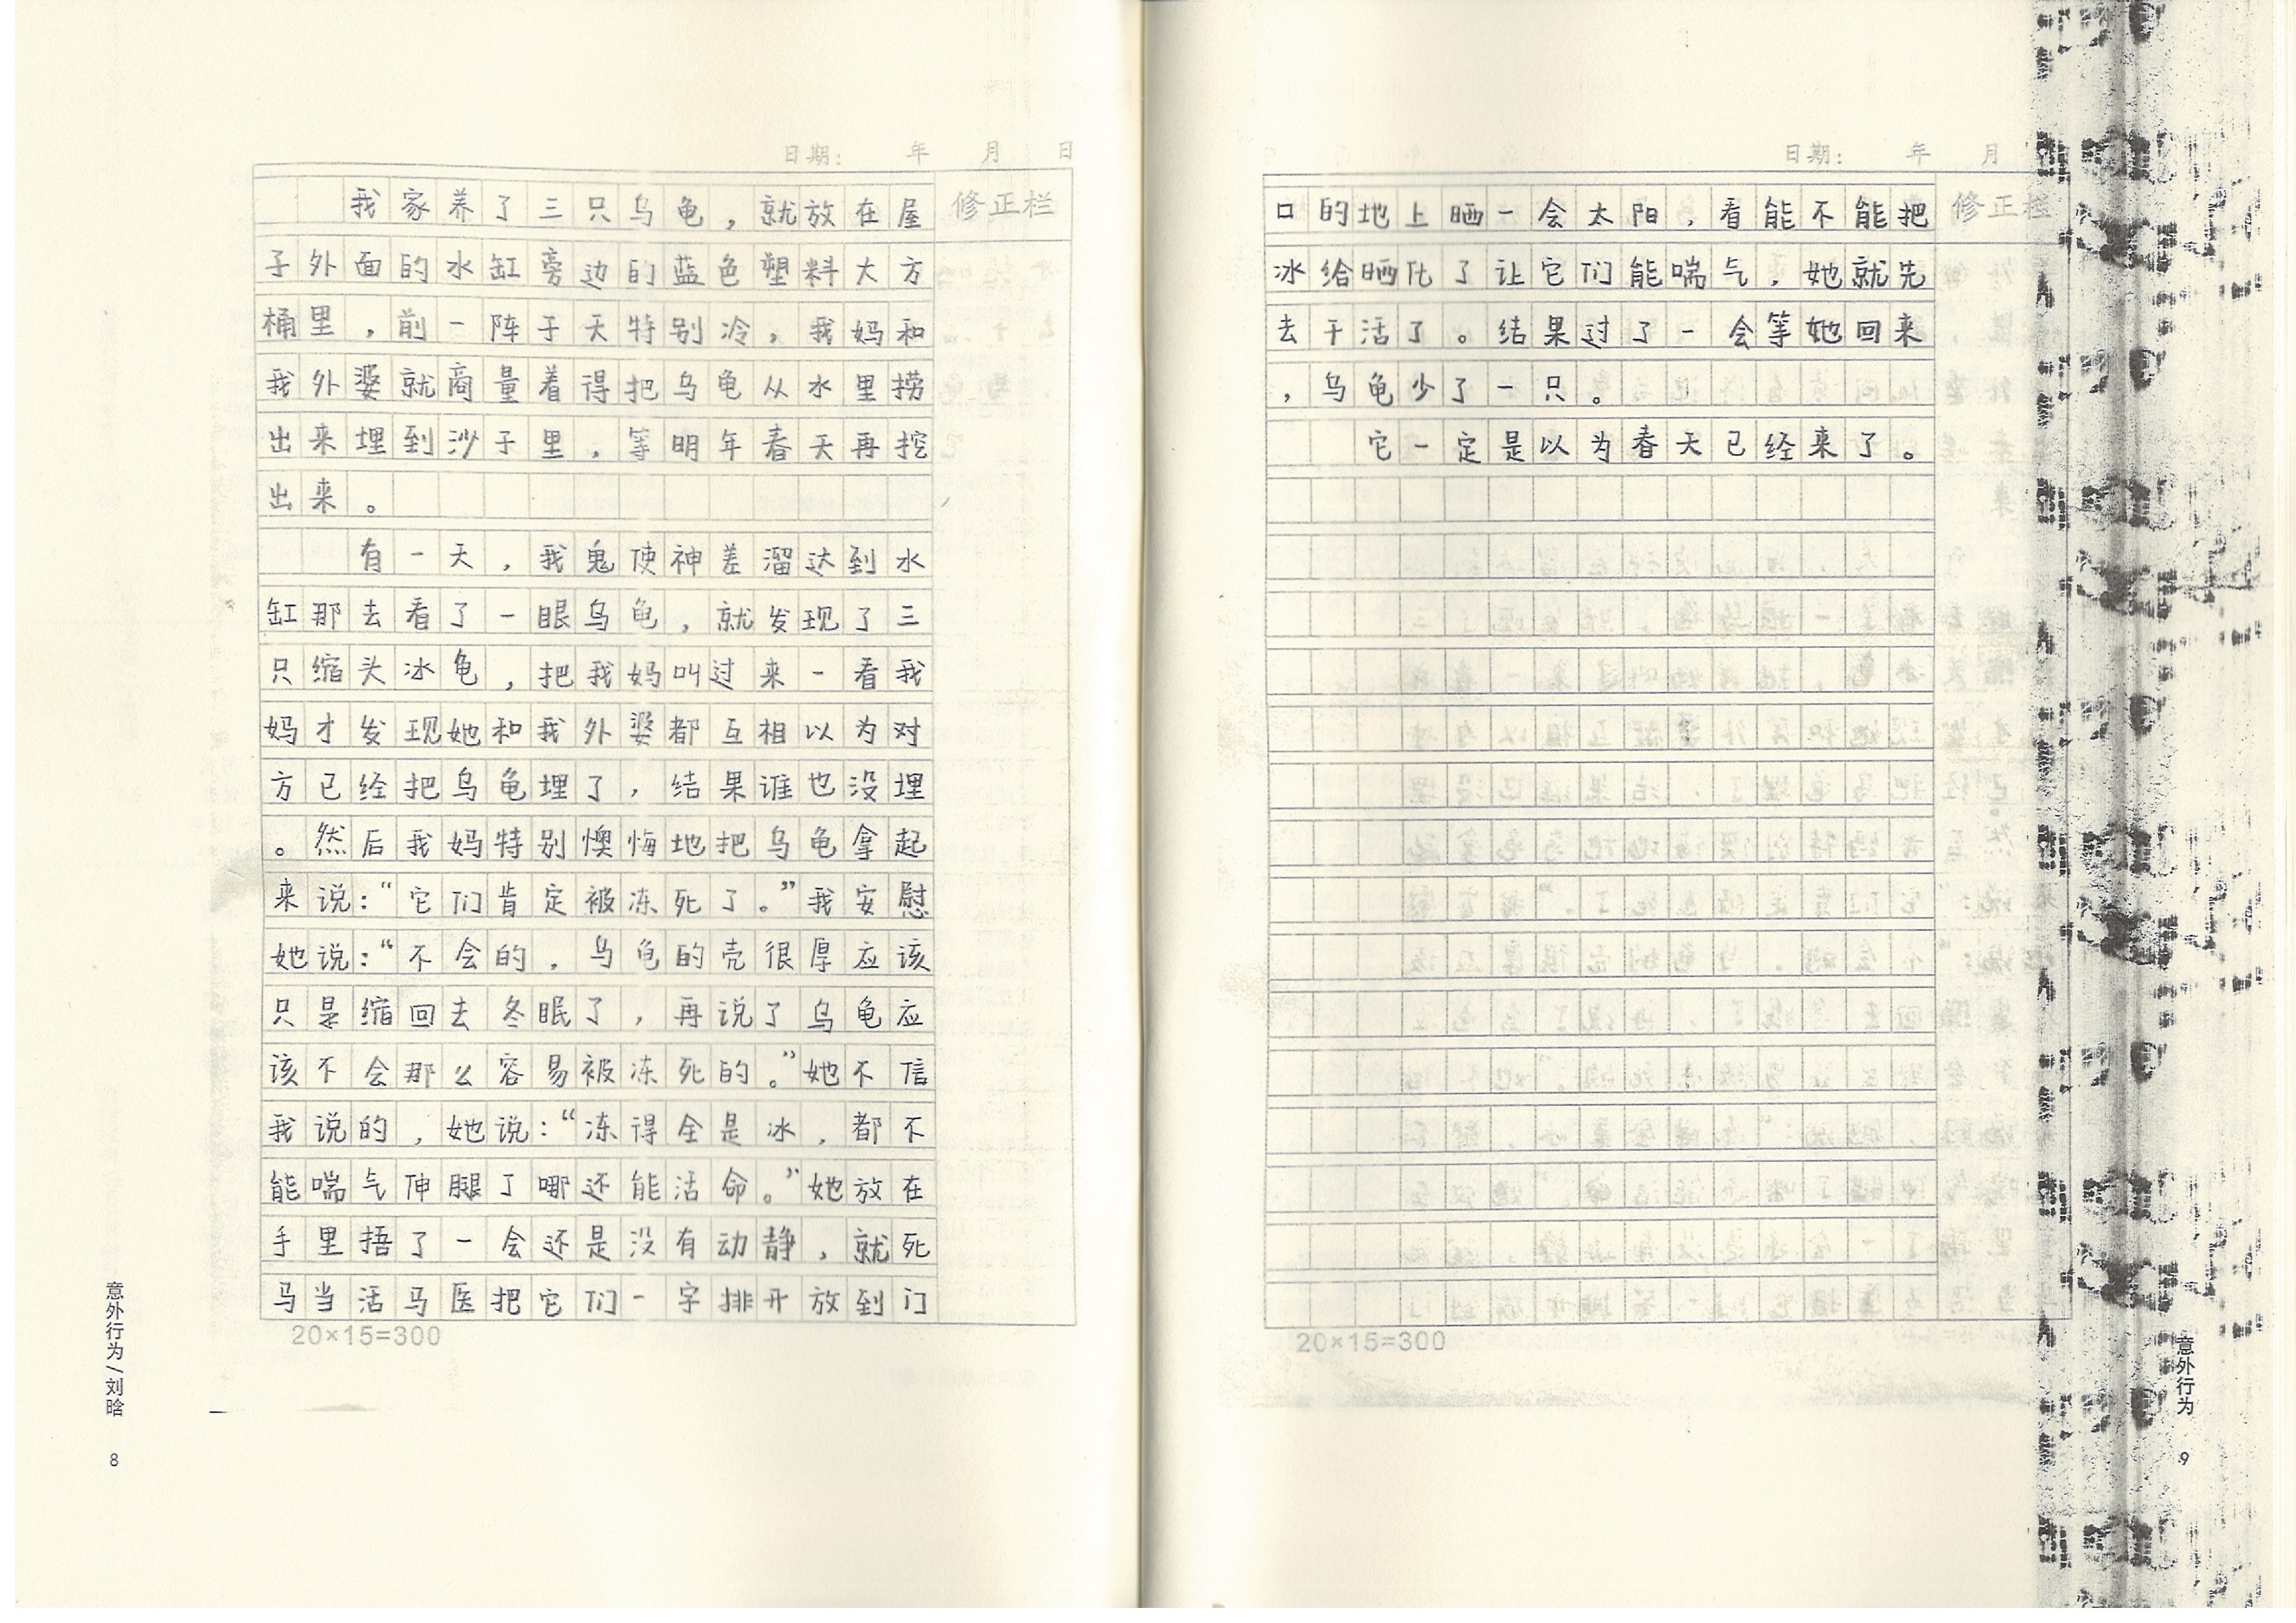 日期: 年 月 日
修正栏
我家养了三只乌龟,就放在屋
子外面的水缸旁边的蓝色塑料大方
桶里,前一阵子天特别冷,我妈和
我外婆就商量着得把乌龟从水里捞
出来埋到沙子里,等明年春天再挖
出来。
有一天,我鬼使神差溜达到水
缸那去看了一眼乌龟,就发现了三
只缩头冰龟,把我妈叫过来一看我
妈才发现她和我外婆都互相以为对
方已经把乌龟埋了,结果谁也没埋
。然后我妈特别懊悔地把乌龟拿起
来说:“它们肯定被冻死了。”我安慰
她说:“不会的,乌龟的壳很厚应该
只是缩回去冬眠了,再说了乌龟应
该不会那么容易被冻死的。”她不信
我说的,她说:“冻得全是冰,都不
能喘气伸腿了哪还能活命。”她放在
手里捂了一会还是没有动静,就死
马当活马医把它们一字排开放到门
20×15=300
意外行为/刘晗
8
日期: 年 月
修正栏
口的地上晒一会太阳,看能不能把
冰给晒化了让它们能喘气,她就先
去干活了。结果过了一会等她回来
,乌龟少了一只。
它一定是以为春天已经来了。
20×15=300
意外行为
9